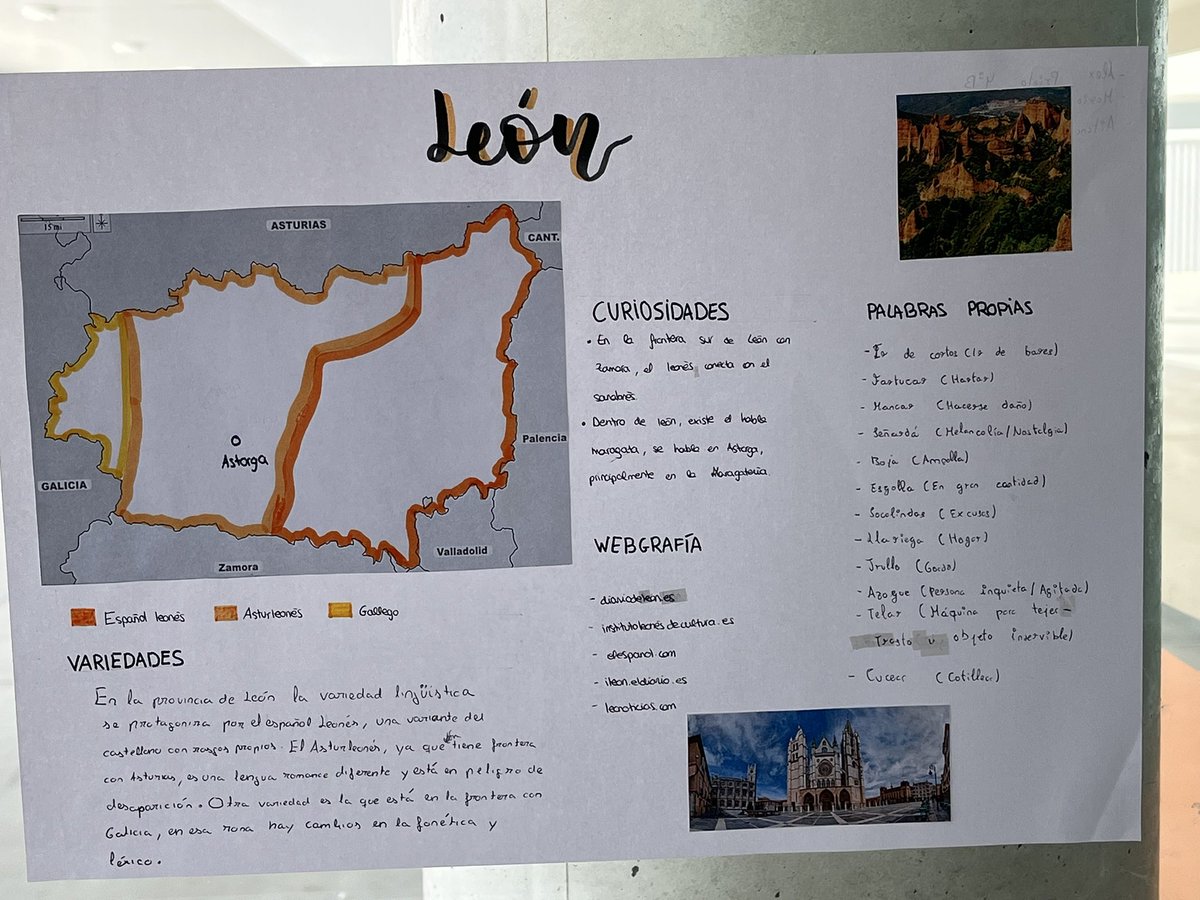 León
15 mi
ASTURIAS
CANT.
Palencia
Valladolid
Zamora
GALICIA
Astorga
Español leonés
Asturleonés
Gallego
VARIEDADES
En la provincia de León la variedad lingüística
se protagoniza por el español Leonés, una variante del
castellano con rasgos propios. El Asturleonés, ya que tiene frontera
con Asturias, es una lengua romance diferente y está en peligro de
desaparición. Otra variedad es la que está en la frontera con
Galicia, en esa zona hay cambios en la fonética y
léxico.
CURIOSIDADES
• En la frontera sur de León con
Zamora, el leonés conecta con el
sanabrés.
• Dentro de león, existe el habla
maragata, se habla en Astorga,
principalmente en la Maragatería.
WEBGRAFÍA
- diariodeleon.es
- institutoleonésdecultura.es
- elespanol.com
- ileon.eldiario.es
- leonoticias.com
PALABRAS PROPIAS
- Ir de cortos (Ir de bares)
- Fartucar (Hartar)
- Mancar (Hacerse daño)
- Señardá (Melancolía/Nostalgia)
- Boja (Ampolla)
- Esgolla (En gran cantidad)
- Socolindas (Excusas)
- Llariega (Hogar)
- Trullo (Gordo)
- Azogue (Persona inquieta/Agitada)
- Telar (Máquina para tejer
Trasto u objeto inservible)
- Cucear (Cotillear)